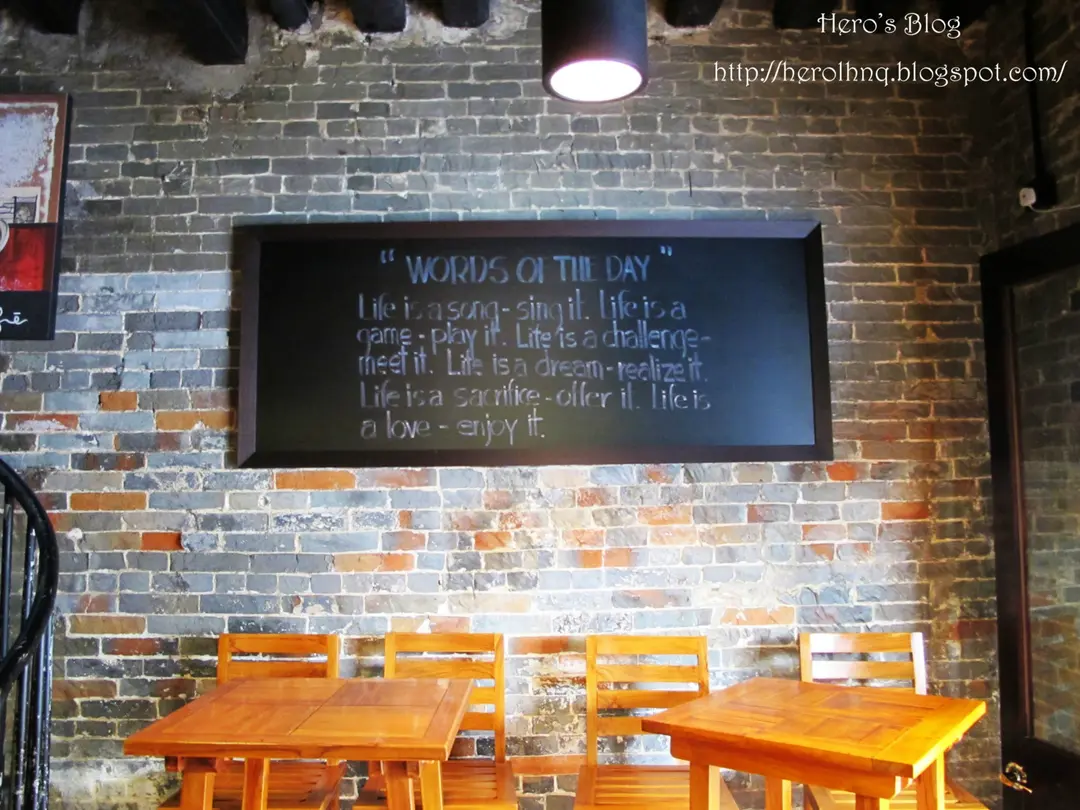 Hero's Blog
http://herolhnq.blogspot.com/
" WORDS OF THE DAY "
Life is a song - sing it. Life is a
game - play it. Life is a challenge -
meet it. Life is a dream - realize it.
Life is a sacrifice - offer it. Life is
a love - enjoy it.